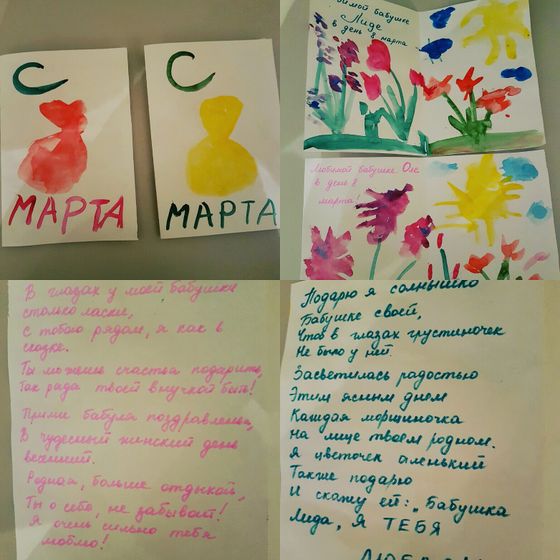 С
МАРТА
С
МАРТА
Любимой бабушке
Лиде
в день 8 марта
Любимой бабушке Оле
в день 8
марта!
В глазах у моей бабушки
столько ласки,
С тобою рядом, я как в
сказке.
Ты можешь счастье подарить,
Так рада твоей внучкой быть!
Прими бабуля поздравленья,
В чудесный женский день
весенний.
Родная, больше отдыхай,
Ты о себе, не забывай!
Я очень сильно тебя
люблю!
Подарю я солнышко
Бабушке своей,
Чтоб в глазах грустиночек
Не было у ней.
Засветилась радостью
Этим ясным днем
Каждая морщиночка
На лице твоем родном.
Я цветочек аленький
Также подарю
И скажу ей: „Бабушка
Лида, Я ТЕБЯ